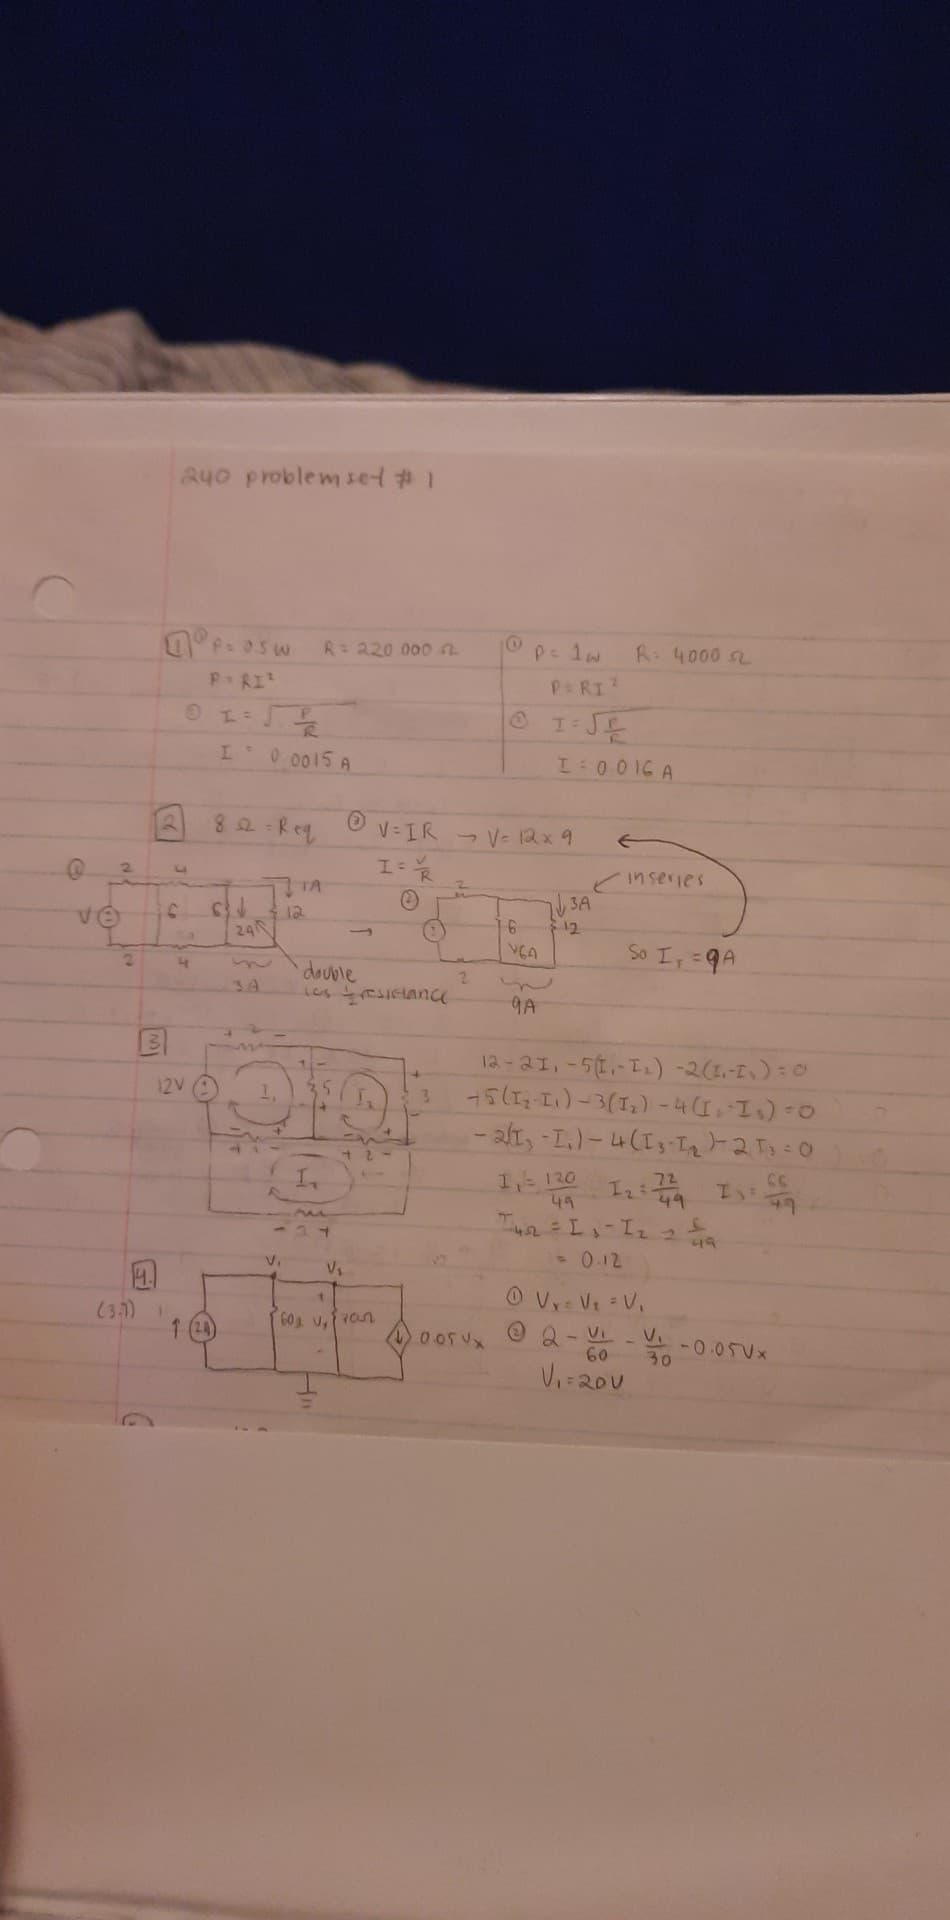 240 problem set # 1
1 ① P = 0.5 W R = 220 000 Ω
P = RI²
② I = √P/R
I = 0.0015 A
① P = 1 W R = 4000 Ω
P = RI²
② I = √P/R
I = 0.016 A
2 8 Ω = Req ③ V = IR → V = 12 x 9
I = V/R
① 2 4 1A
V 6 6 ↓ 12
2A
2 4
3A
double
1/2 resistance
→
② 2 ↓ 3A
6 12
↓6A
2
9A
in series
So I = 9A
3
+ 2 -
12V I₁ 5 I₂ 3
+ 2 -
- 2 +
12 - 2I₁ - 5(I₁-I₂) - 2(I₁-I₃) = 0
-5(I₂-I₁) - 3(I₂) - 4(I₂-I₃) = 0
-2(I₃-I₁) - 4(I₃-I₂) - 2I₃ = 0
I₁ = 120/49 I₂ = 72/49 I₃ = 66/49
I₄Ω = I₃ - I₂ = 6/49
= 0.12
4.
(3.7)
V₁ V₂
↑ 2A 60Ω 0.05Vx
① Vx = V₂ = V₁
② 2 - V₁/60 - V₁/30 - 0.05Vx
V₁ = 20V